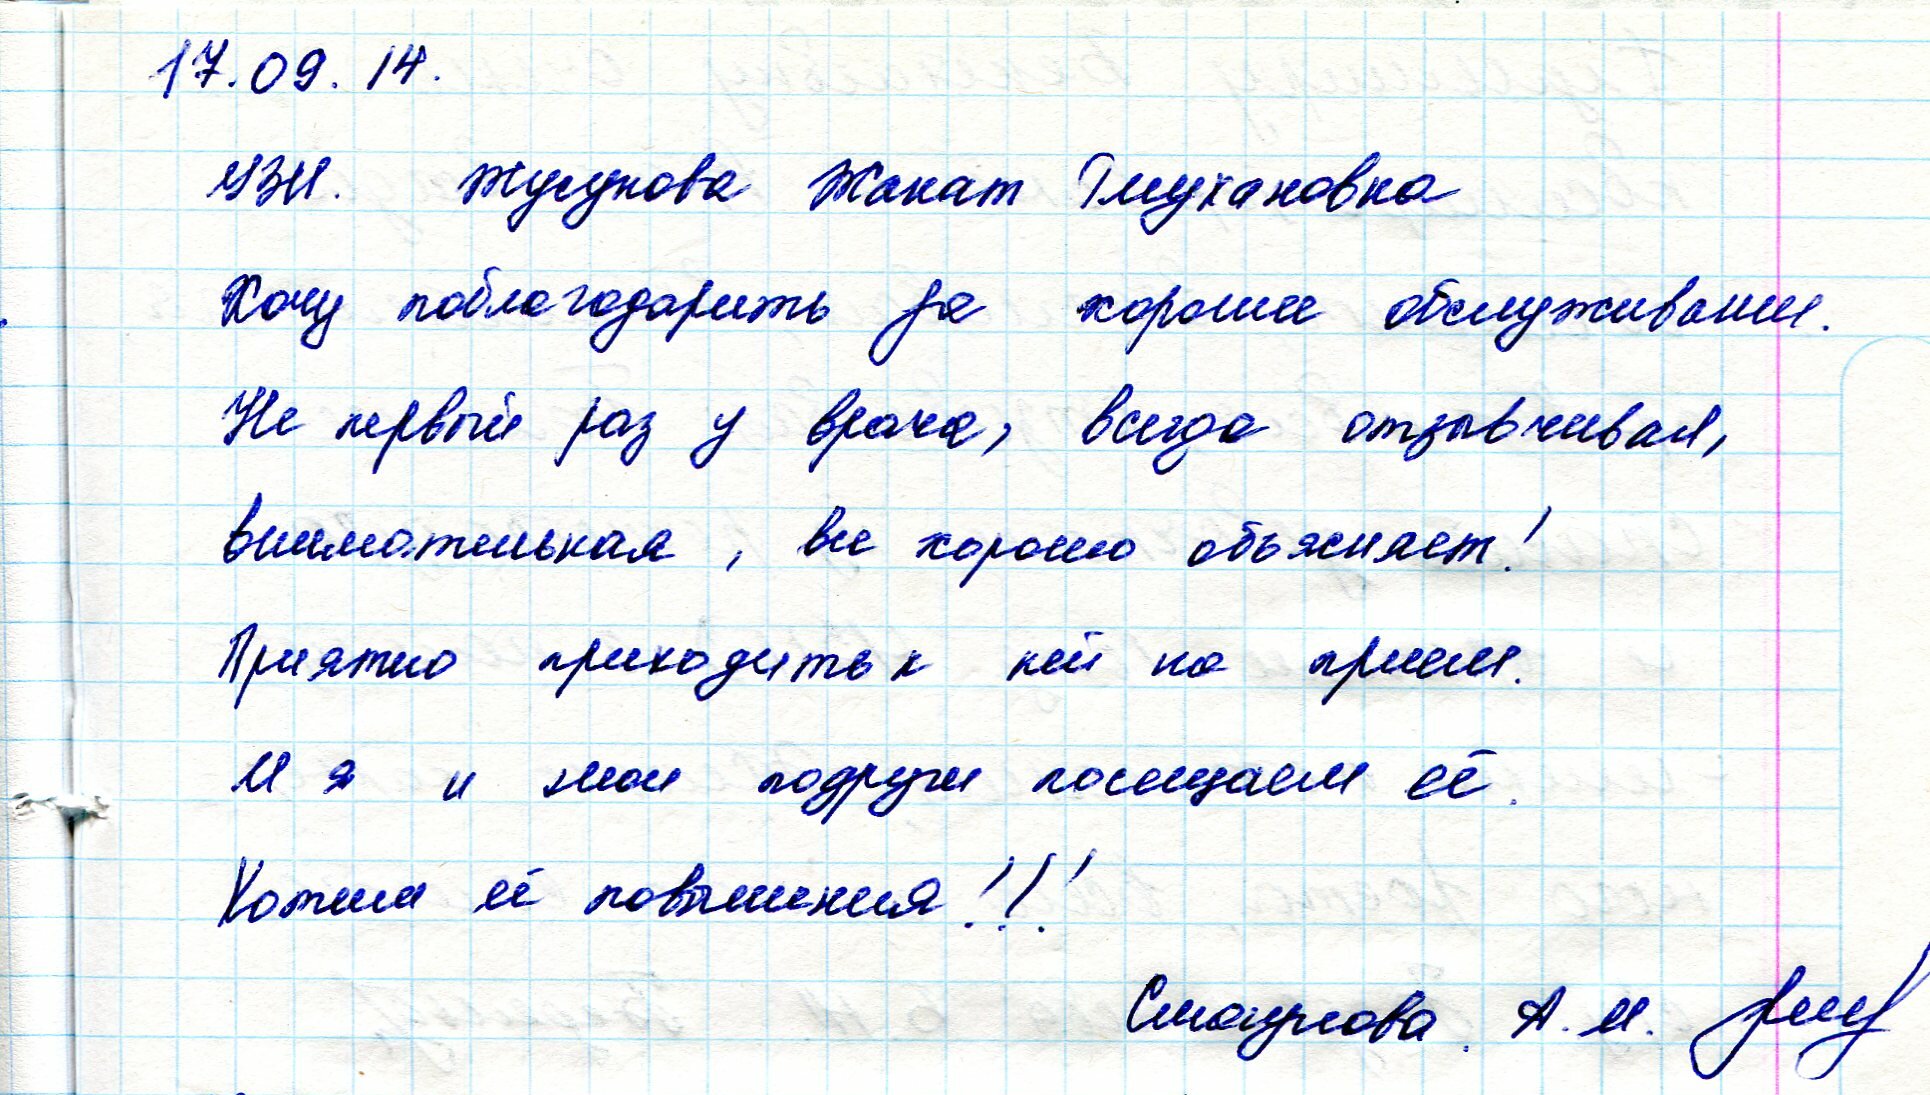 17.09.14.
УЗИ. Жусупова Жанат Тлеухановна
Хочу поблагодарить за хорошее обслуживание.
Не первый раз у врача, всегда отзывчивая,
внимательная, все хорошо объясняет!
Приятно приходить к ней на прием.
И я и мои подруги посещаем её.
Хотим её повышения!!!
А.М.